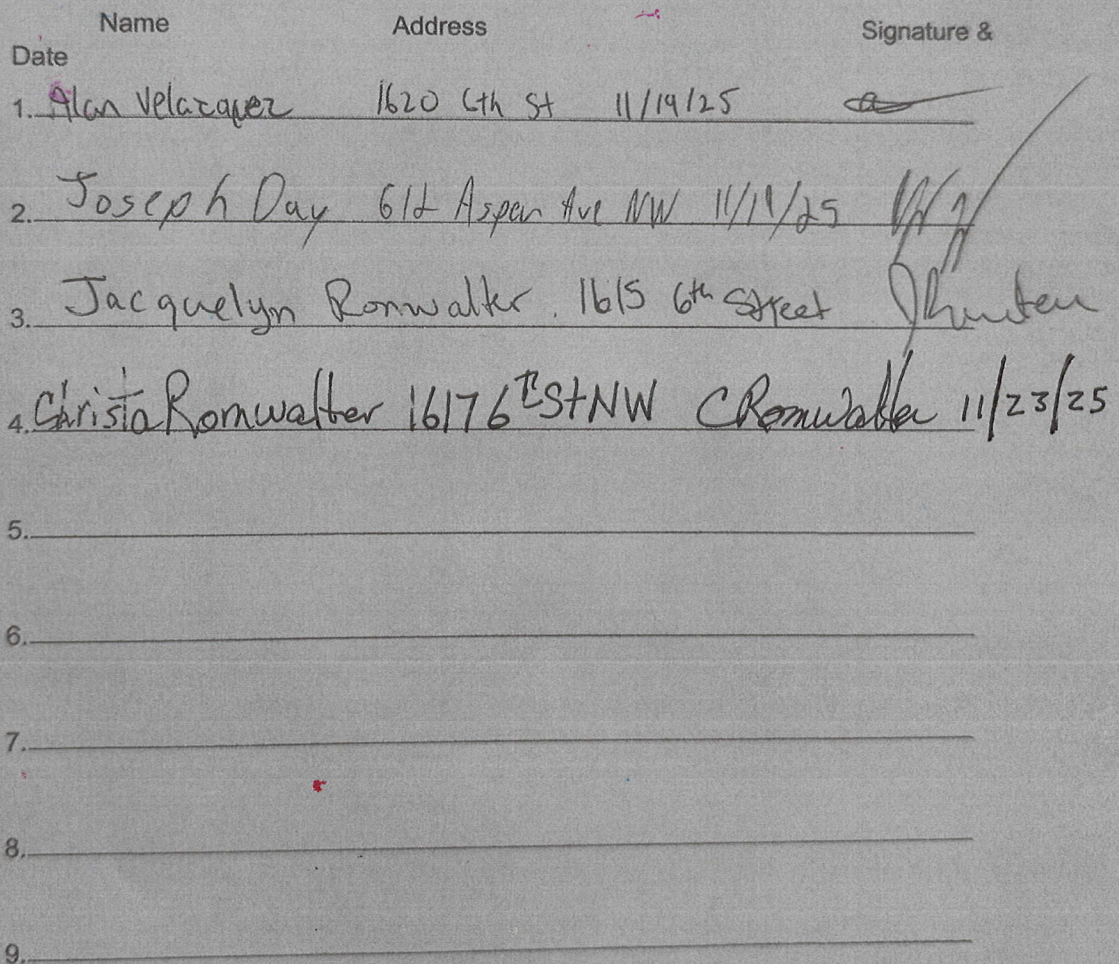 Name Address Signature &
Date
1. Alan Velazquez 1620 6th St 11/19/25
2. Joseph Day 612 Aspen Ave NW 11/19/25
3. Jacquelyn Romwalter. 1615 6th Street
4. Christa Romwalter 1617 6th St NW CRomwalter 11/23/25
5.
6.
7.
8.
9.